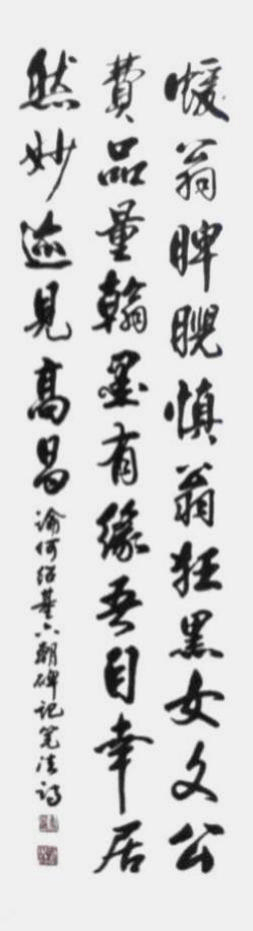 蝯翁睥睨慎翁狂黑女文公
費品量翰墨有缘吾自幸居
然妙迹見高昌
論何绍基六朝碑记笔法詩